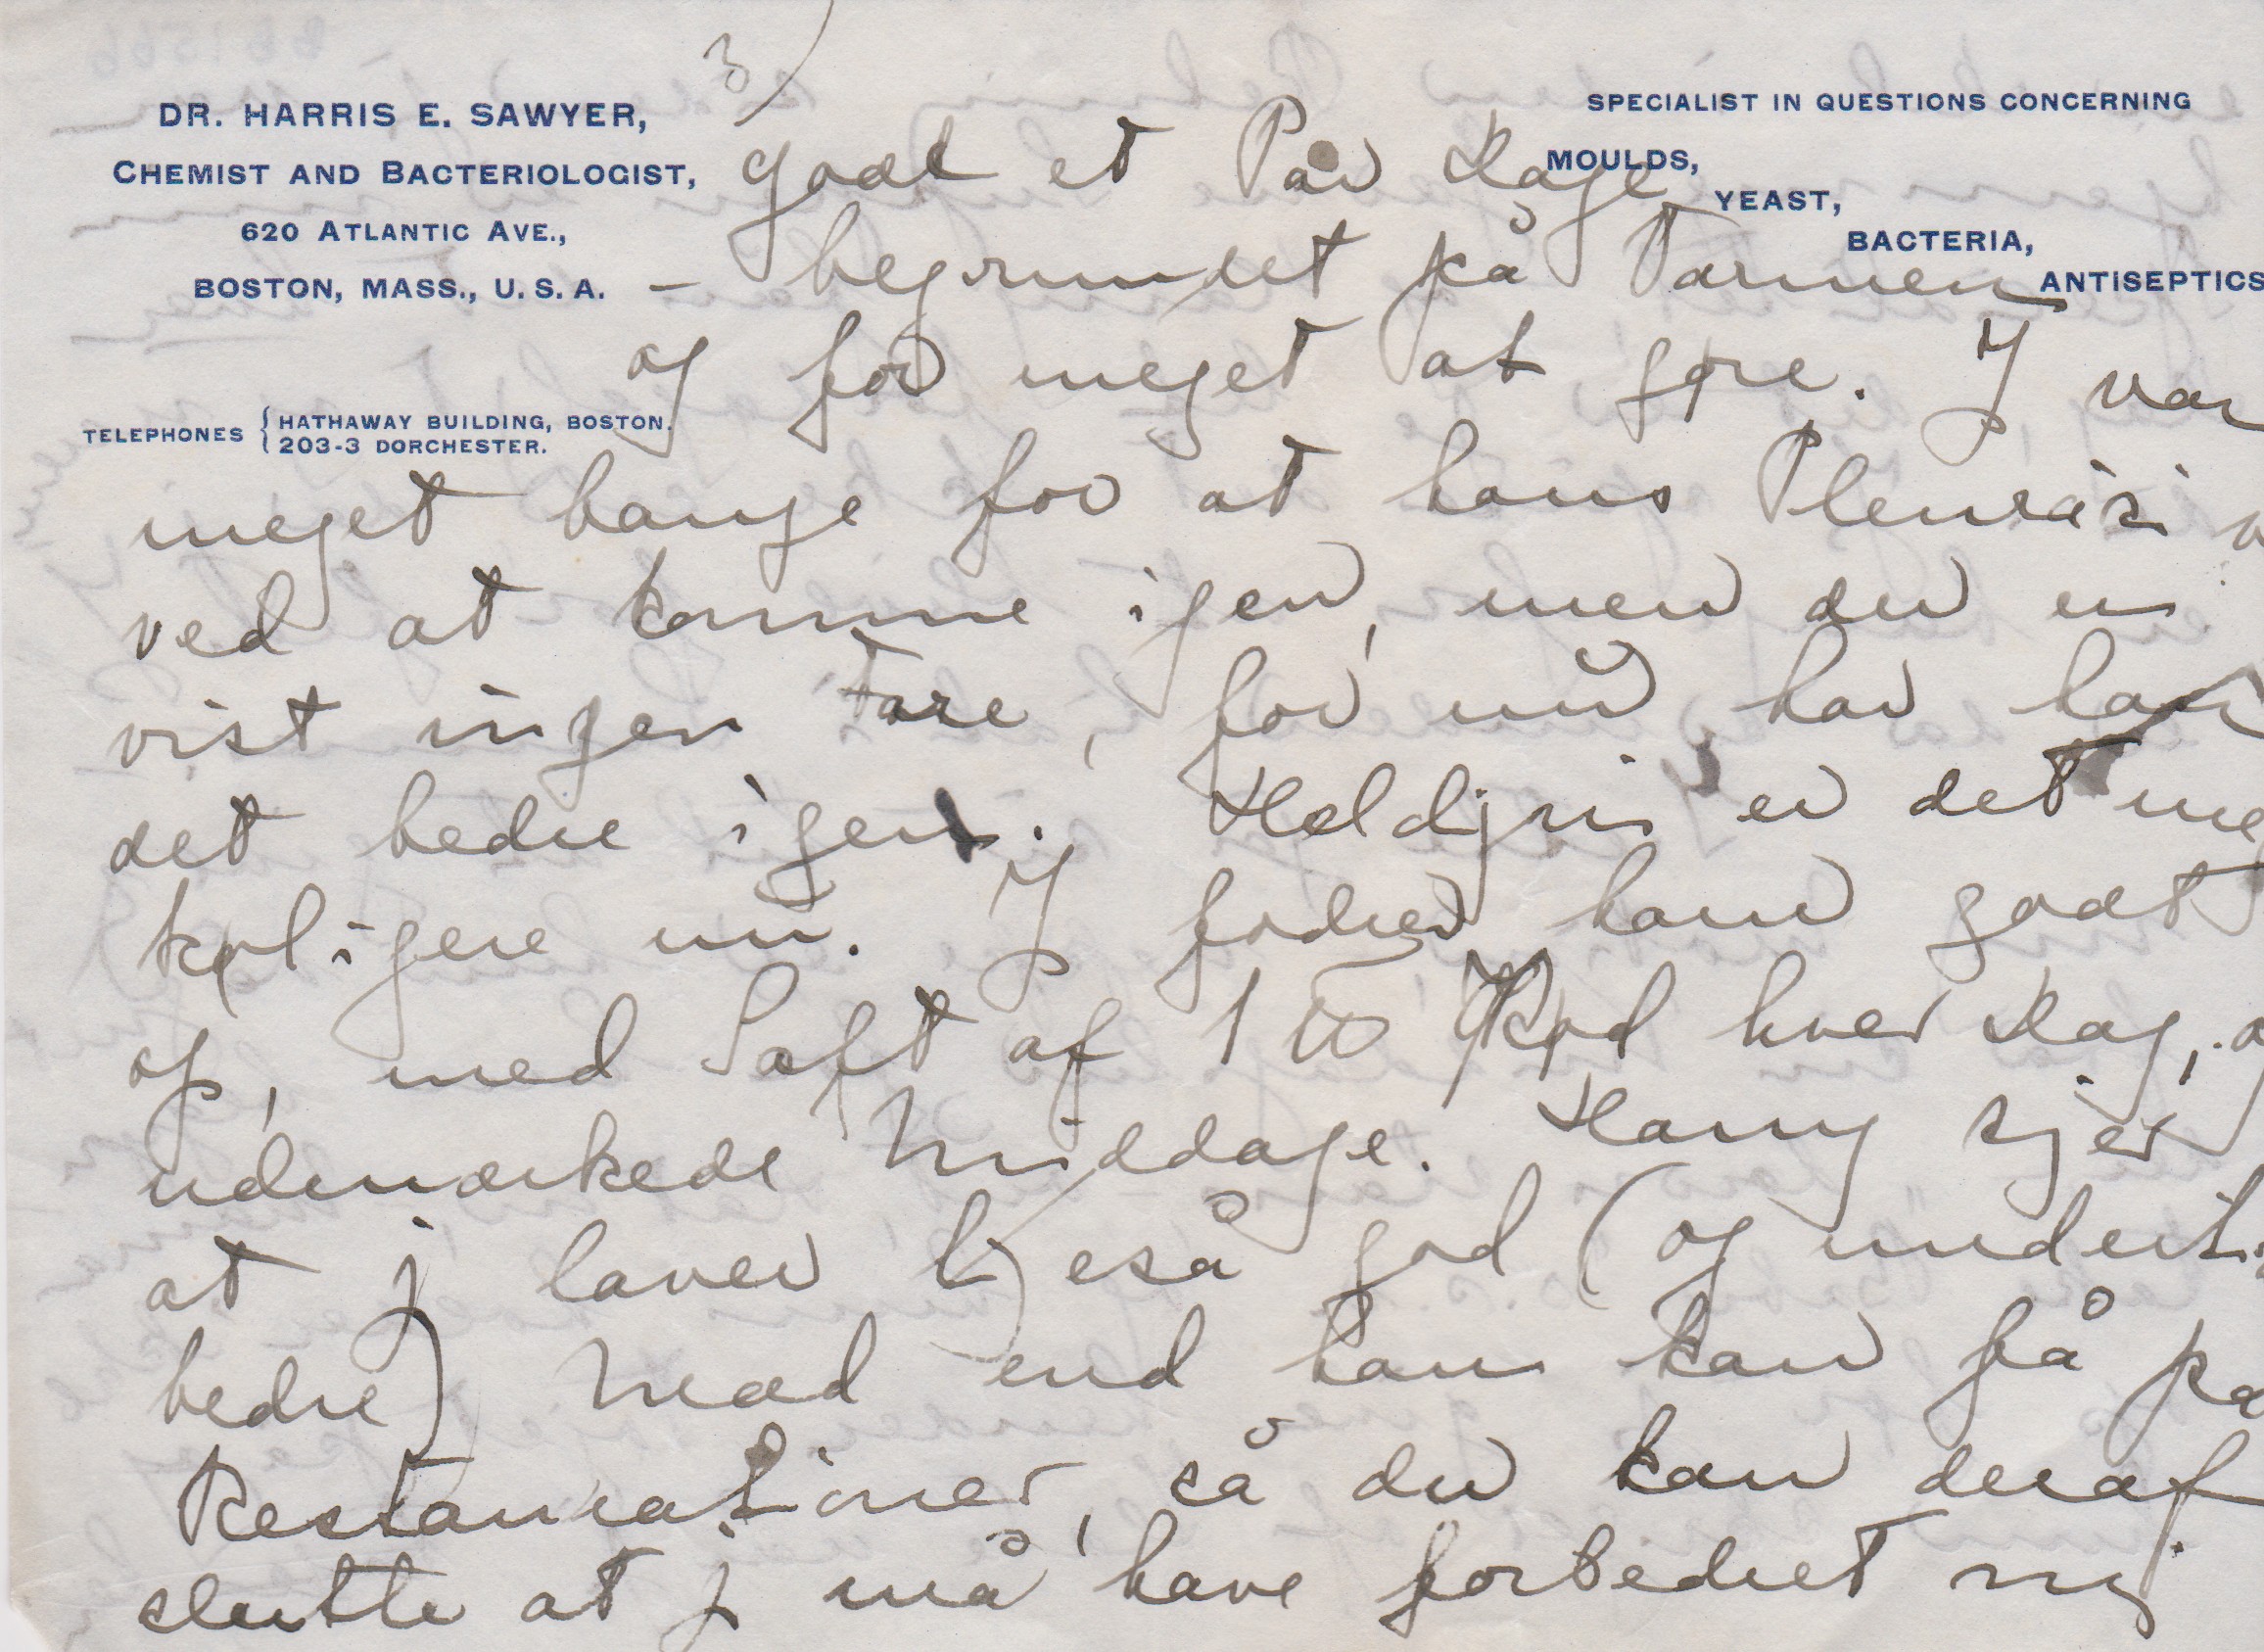 3)
DR. HARRIS E. SAWYER,
CHEMIST AND BACTERIOLOGIST,
620 ATLANTIC AVE.,
BOSTON, MASS., U. S. A.
TELEPHONES { HATHAWAY BUILDING, BOSTON.
203-3 DORCHESTER.
SPECIALIST IN QUESTIONS CONCERNING
MOULDS,
YEAST,
BACTERIA,
ANTISEPTICS
godt et Par Dage
– begrundet på Varmen
og for meget at gøre. J var
meget bange for at hans Pleuräsi
ved at komme igen, men der er
vist ingen Fare, for nu har han
det bedre igen. Heldigvis er det me
køligere nu. J fodrer ham godt
op, med Saft af 1 ℔ Kød hver Dag, o
udmærkede Middage. Harry sjer
at j laver ligeså god (og undert
bedre) Mad end han kan få på
Restaurationer, så du kan deraf
slutte at j må have forbedret mig